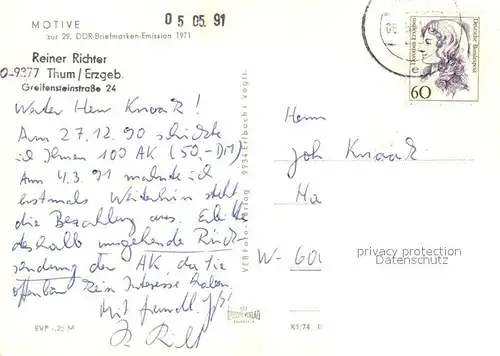 MOTIVE
zur 29. DDR-Briefmarken-Emission 1971
05 05. 91
Reiner Richter
O-9377 Thum/Erzgeb.
Greifensteinstraße 24
Werter Herr Knaak!
Am 27.12.90 schickte
ich Ihnen 100 AK (50,-DM)
Am 4.3.91 mahnte ich
erstmals. Weiterhin steht
die Bezahlung aus. Erbitte
deshalb umgehende Rück-
sendung der AK, da Sie
offenbar kein Interesse haben.
Mit freundl.
EVP -,25 M
VEB Foto-Verlag 9934 Erlbach i. Vogtl.
K1/74
Dorothea Erxleben
Deutsche Bundespost
60
Herrn
Joh Knaak
W- 600
privacy protection
Datenschutz